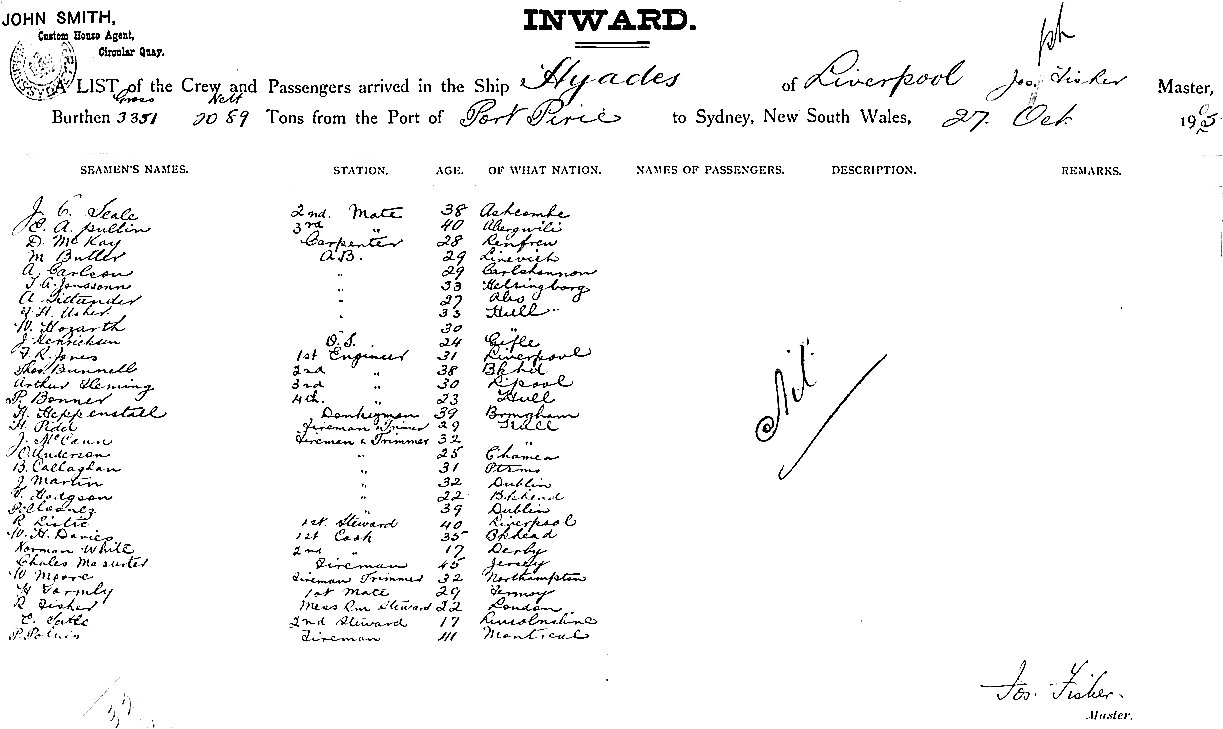 JOHN SMITH,
Custom House Agent,
Circular Quay.
INWARD.
A LIST of the Crew and Passengers arrived in the Ship Hyades of Liverpool Jos. Fisher Master,
Burthen Gross 3351 Nett 2089 Tons from the Port of Port Pirie to Sydney, New South Wales, 27 Oct. 19
SEAMEN'S NAMES. STATION. AGE. OF WHAT NATION. NAMES OF PASSENGERS. DESCRIPTION. REMARKS.
J. C. Seale 2nd. Mate 38 Ashcombe
A. Pullin 3rd " 40 Abergwili
D. McKay Carpenter 28 Renfrew
M Butler A.B. 29
A. Carlson " 29
Jonssonn " 33 Helsingborg
A. " 27 Abo
H. Usher " 33 Hull
W. Hogarth 30 "
J. Henrickson O.S. 24 Gefle
F. R. Jones 1st Engineer 31 Liverpool
Thos. Bunnell 2nd " 38 Bkhd
Arthur Fleming 3rd " 30 Lpool
P. Bonner 4th. " 23 Hull
H. Heppenstall Donkeyman 39
H. Rider Fireman & Trimmer 29 Hull
J. McCann Fireman & Trimmer 32 "
Anderson " 25
B. Callaghan " 31
J Martin " 32 Dublin
Hodgson " 22 Bkhead
" 39 Dublin
R 1st. Steward 40 Liverpool
W. H. Davies 1st Cook 35 Bkhead
Norman White 2nd " 17 Derby
Chales Fireman 45 Jersey
W Moore Fireman Trimmer 32 Northampton
Formly 1st Mate 29 Fermoy
R Fisher Mess Rm Steward 22 London
2nd Steward 17
P. Fireman 41
Nil
Jos. Fisher.
Master.